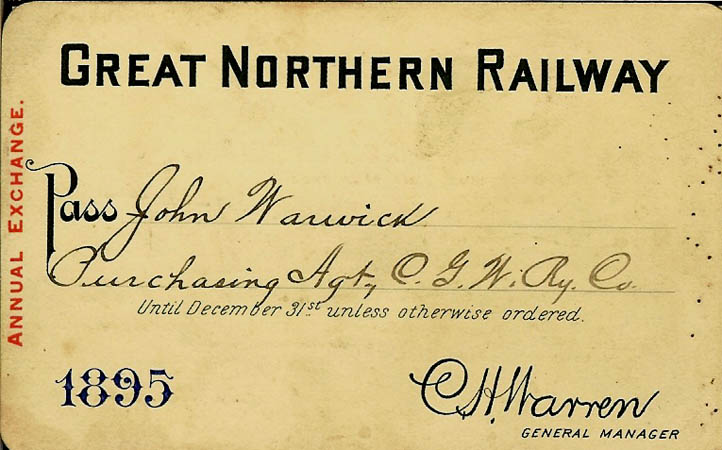 GREAT NORTHERN RAILWAY
ANNUAL EXCHANGE.
Pass John Warwick
Purchasing Agt., C. G. W. Ry. Co.
Until December 31st unless otherwise ordered.
1895
C.H.Warren
GENERAL MANAGER